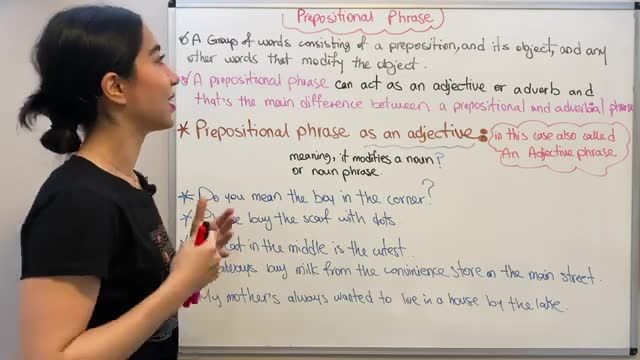 Prepositional Phrase
A Group of words consisting of a preposition, and its object, and any
other words that modify the object.
A prepositional phrase can act as an adjective or adverb and
that's the main difference between a prepositional and adverbial phrase
* Prepositional phrase as an adjective:
in this case also called
An Adjective phrase
meaning, it modifies a noun?
or noun phrase.
* Do you mean the boy in the corner?
* buy the scarf with dots
in the middle is the cutest.
always buy milk from the convinience store on the main street.
My mother's always wanted to live in a house by the lake.